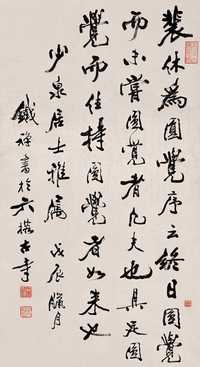 裴休為圓覺序云終日圓覺
而未嘗圓覺者凡夫也具足圓
覺而住持圓覺者如来也
少泉居士雅屬 戊辰臘月
鐵禪書於六榕古寺